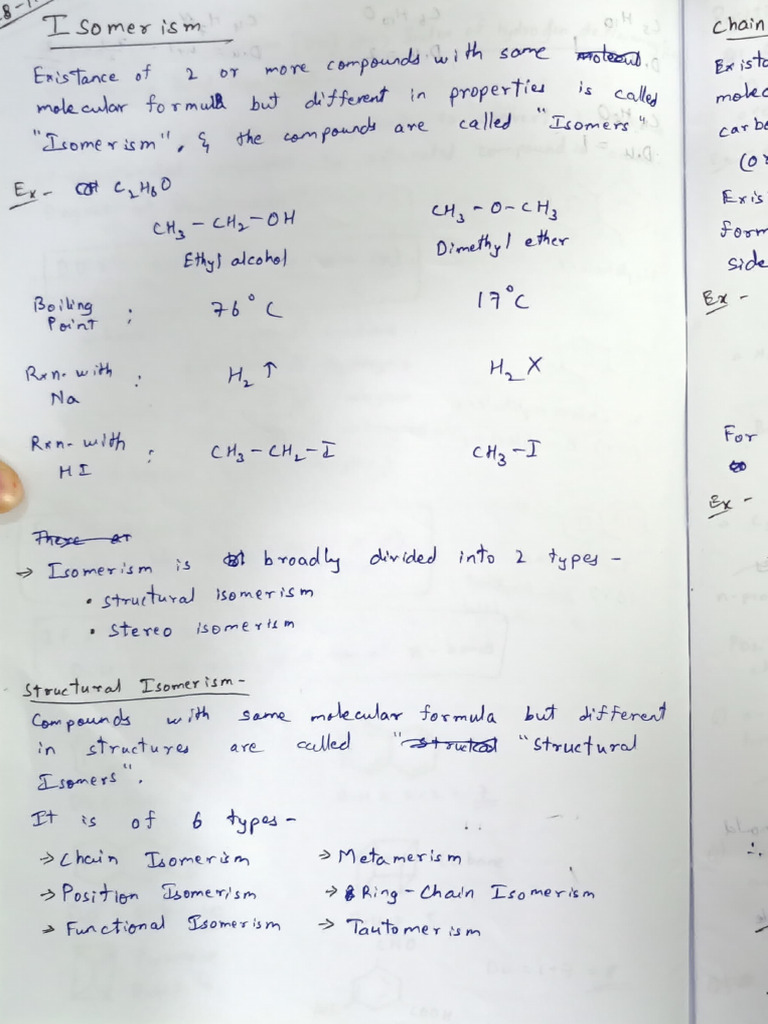 8-1
Isomerism
Existance of 2 or more compounds with same
molecular formula but different in properties is called
"Isomerism", & the compounds are called "Isomers"
Ex - C₂H₆O
CH₃ - CH₂ - OH CH₃ - O - CH₃
Ethyl alcohol Dimethyl ether
Boiling Point : 76°C 17°C
Rxn. with Na : H₂ ↑ H₂ X
Rxn. with HI : CH₃ - CH₂ - I CH₃ - I
There ar
→ Isomerism is broadly divided into 2 types -
• structural isomerism
• stereo isomerism
Structural Isomerism -
Compounds with same molecular formula but different
in structures are called "structural
Isomers".
It is of 6 types -
→ Chain Isomerism → Metamerism
→ Position Isomerism → Ring - Chain Isomerism
→ Functional Isomerism → Tautomerism
Chain
Exista
molec
carbo
(or
Exis
form
side
Ex -
For
Ex -